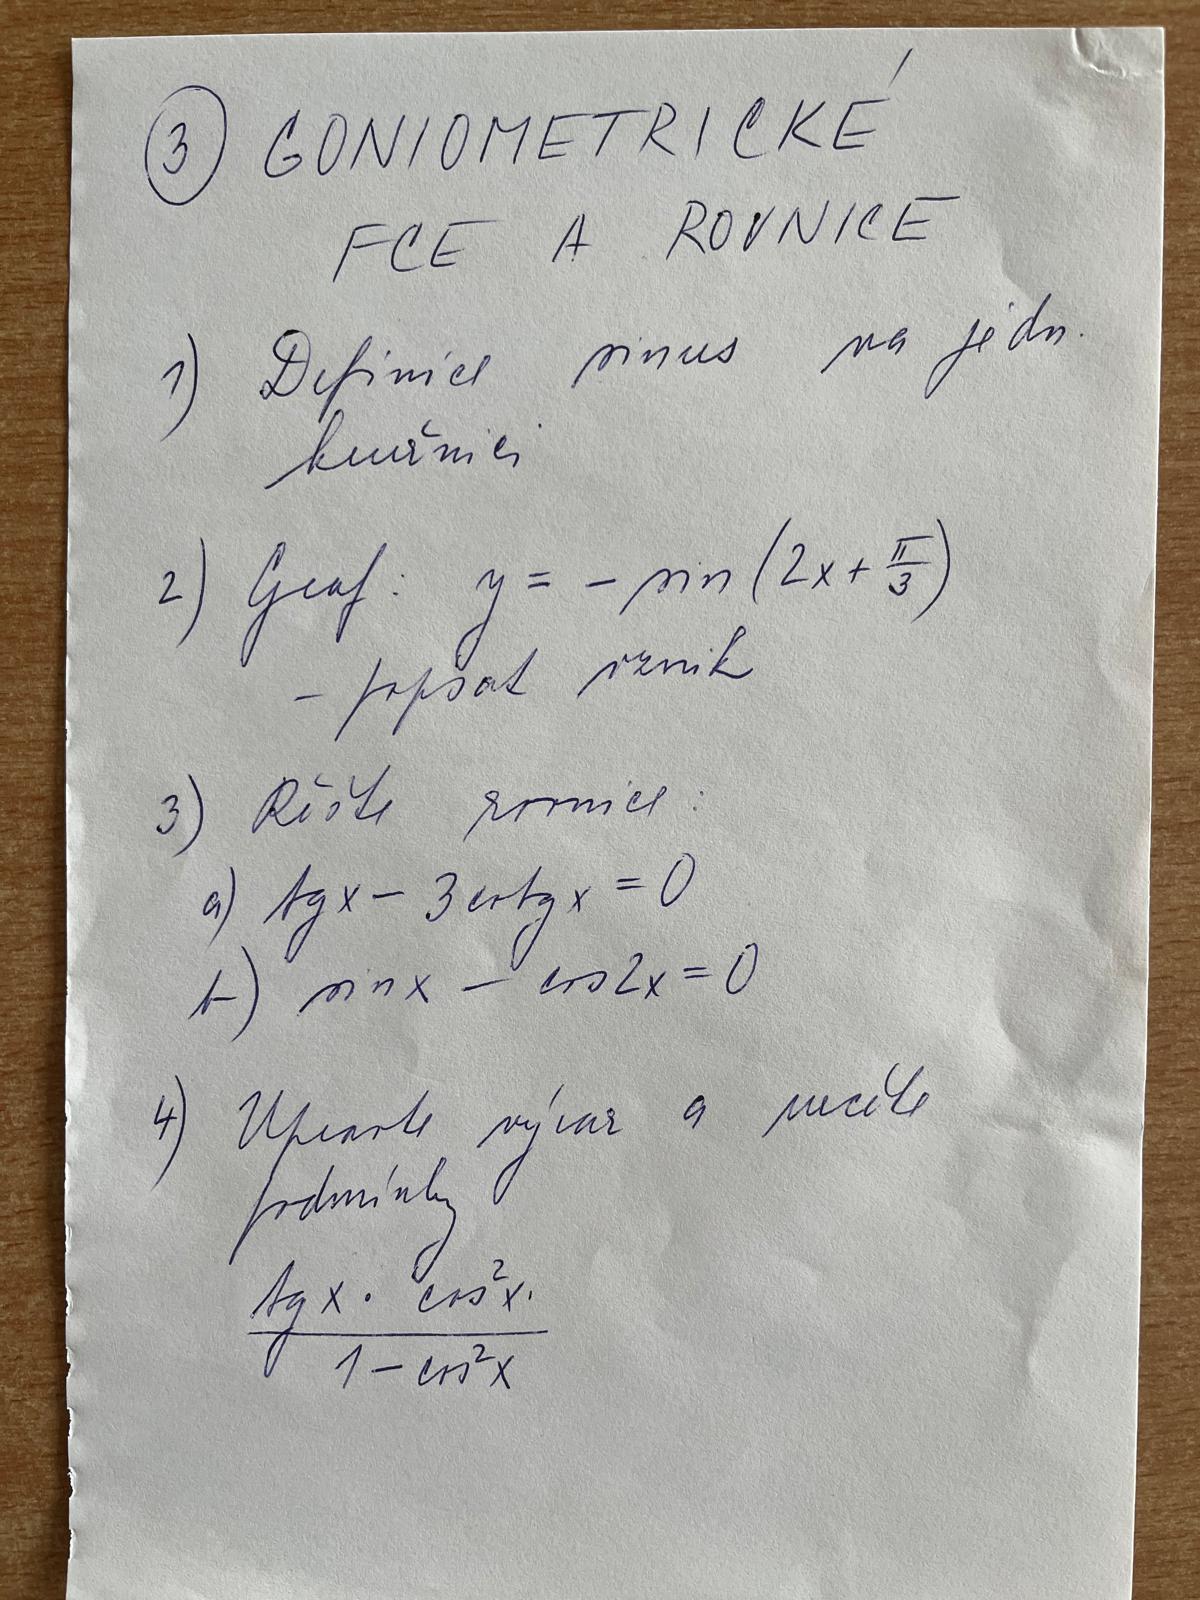 3 GONIOMETRICKÉ
FCE A ROVNICE
1) Definice sinus na jedn.
kružnici
2) Graf: y = - sin (2x + π/3)
- popsat vznik
3) Řešte rovnice:
a) tgx - 3cotgx = 0
b) sinx - cos2x = 0
4) Upravte výraz a určete
podmínky
tgx · cos²x.
1 - cos²x